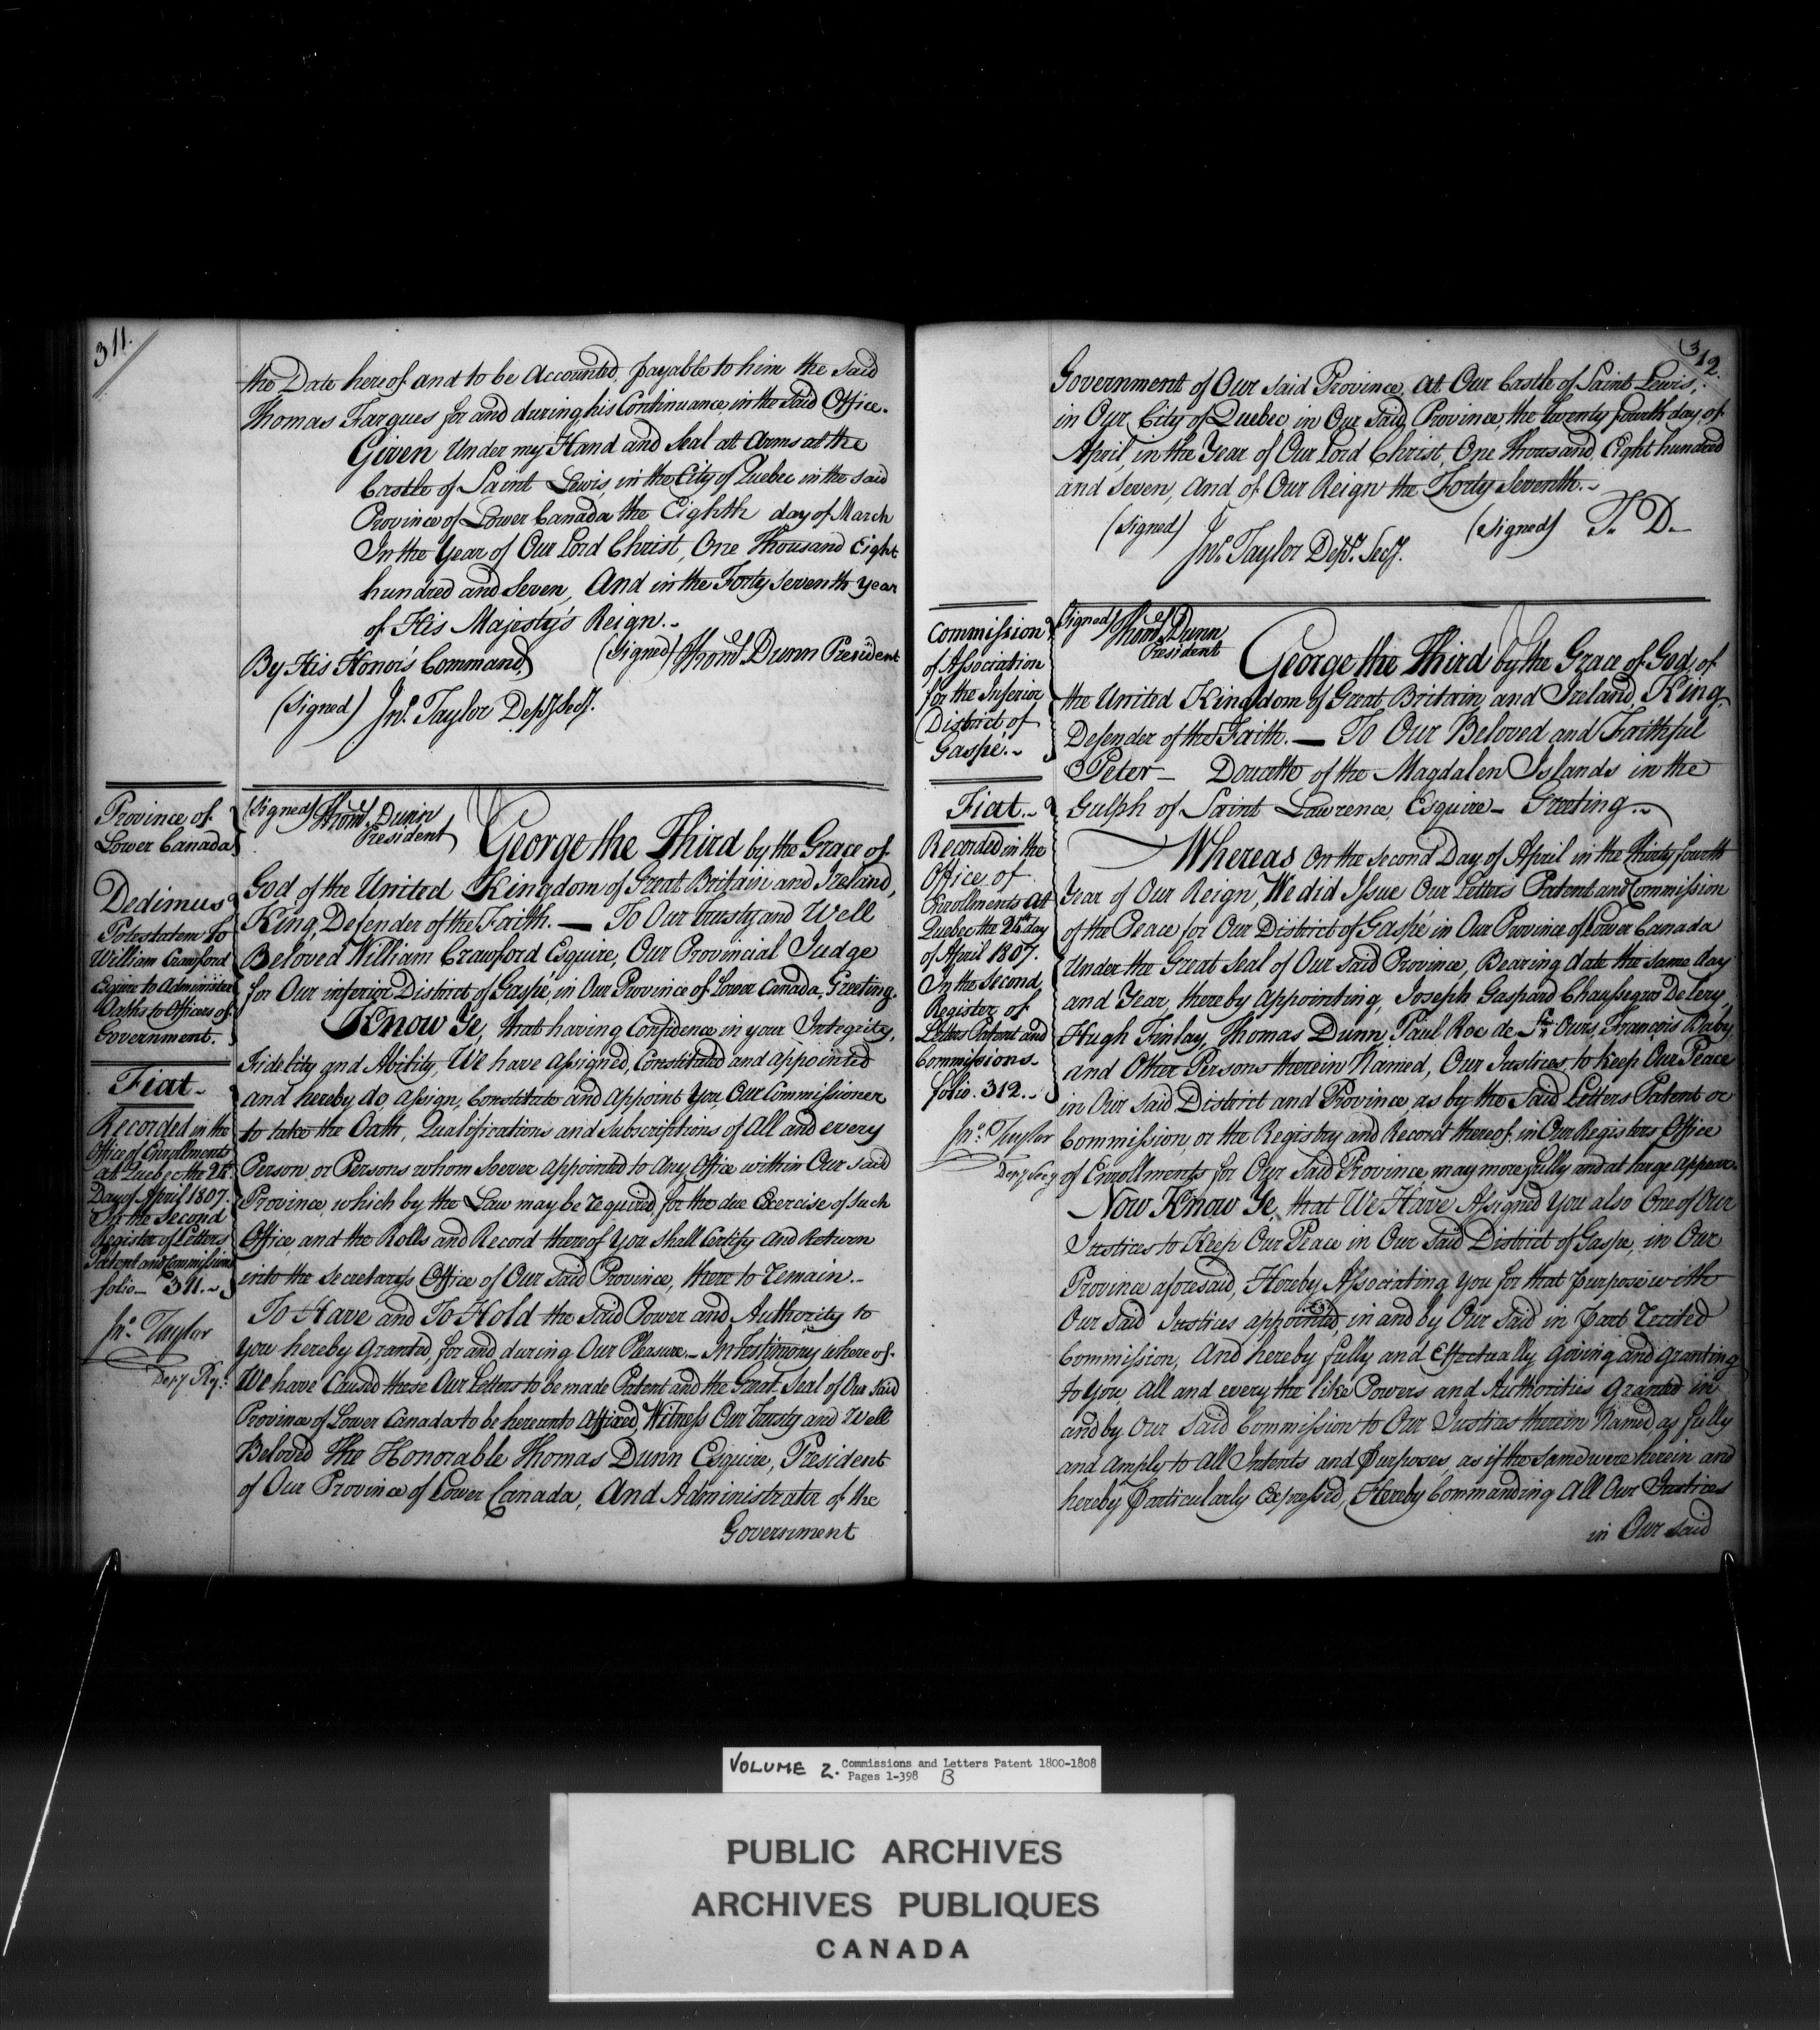 311.
the Date hereof and to be Accounted, payable to him the said
Thomas Fargues for and during his Continuance in the said Office.
Given Under my Hand and Seal at Arms at the
Castle of Saint Lewis, in the City of Quebec in the said
Province of Lower Canada the Eighth day of March
In the Year of Our Lord Christ, One Thousand Eight
hundred and Seven, And in the Forty seventh year
of His Majesty's Reign.~
(Signed) Thos. Dunn President
By His Honor's Command,
(Signed) Jno. Taylor Depy. Secy.
Province of
Lower Canada
Dedimus
Potestatem to
William Crawford
Esquire to Administer
Oaths to Officers of
Government.
Fiat~
Recorded in the
Office of Enrollments
At Quebec the 24th
Day of April 1807.
In the Second
Register of Letters
Patent and Commissions
folio— 311.~
Jno. Taylor
Depy. Rgr.
(Signed) Thos. Dunn
President
George the Third by the Grace of
God of the United Kingdom of Great Britain and Ireland,
King, Defender of the Faith.— To Our Trusty and Well
Beloved William Crawford Esquire, Our Provincial Judge
for Our inferior District of Gaspé, in Our Province of Lower Canada, Greeting.
Know Ye, that having Confidence in your Integrity,
Fidelity and Ability, We have assigned, Constituted and appointed
and hereby do, assign, Constitute and appoint You, Our Commissioner
to take the Oath, Qualifications and Subscriptions of All and every
Person or Persons whom Soever appointed to Any Office within Our said
Province, which by the Law may be required, for the due Exercise of such
Office, and the Rolls and Record thereof You Shall Certify And Return
into the Secretarys Office of Our Said Province, there to remain.~
To Have and To Hold the Said Power and Authority to
you hereby Granted, for and during Our Pleasure.~ In Testimony whereof.
We have Caused these Our Letters to be made Patent and the Great Seal of Our said
Province of Lower Canada to be hereunto Affixed, Witness Our Trusty and Well
Beloved The Honorable Thomas Dunn Esquire, President
of Our Province of Lower Canada, And Administrator of the
Government
312.
Government of Our Said Province, at Our Castle of Saint Lewis,
in Our City of Quebec in Our Said Province, the Twenty fourth day of
April, in the Year of Our Lord Christ, One Thousand, Eight hundred
and Seven, And of Our Reign the Forty Seventh.~
(Signed) T. D.—
(Signed)
Jno. Taylor Depy. Secy.
Commission
of Association
for the Inferior
District of
Gaspé.~
Fiat.~
Recorded in the
Office of
Enrollments At
Quebec the 24th day
of April 1807.
In the Second
Register of
Letters Patent and
Commissions~
folio. 312.~
Jno. Taylor
Depy. Secy
(Signed) Thos. Dunn
President
George the Third by the Grace of God, of
the United Kingdom of Great Britain and Ireland, King,
Defender of the Faith.— To Our Beloved and Faithful
Peter— Doucette of the Magdalen Islands in the
Gulph of Saint Lawrence, Esquire— Greeting.~
Whereas On the Second Day of April in the Thirty fourth
Year of Our Reign, We did Issue Our Letters Patent and Commission
of the Peace for Our District of Gaspé in Our Province of Lower Canada
Under the Great Seal of Our said Province, Bearing date the same day
and Year, thereby Appointing, Joseph Gaspard Chaussegros De Lery,
Hugh Finlay, Thomas Dunn, Paul Roc de St. Ours, François Baby,
and Other Persons therein Named, Our Justices to keep Our Peace
in Our Said District and Province, as by the Said Letters Patent or
Commission, or the Registry and Record thereof in Our Registers Office
of Enrollments for Our Said Province may more fully and at large appear.
Now Know Ye, that We Have Assigned You also One of Our
Justices to Keep Our Peace in Our Said District of Gaspe, in Our
Province aforesaid, Hereby Associating You for that purpose with
Our Said Justices appointed, in and by Our Said in part recited
Commission, And hereby fully and Effectually Giving and granting
to You, All and every the like Powers and Authorities Granted in
and by Our Said Commission to Our Justices therein Named, as fully
and Amply to All Intents and Purposes, as if the Same were herein and
hereby Particularly Expressed, Hereby Commanding All Our Justices
in Our said
VOLUME 2. Commissions and Letters Patent 1800-1808
Pages 1-398 B
PUBLIC ARCHIVES
ARCHIVES PUBLIQUES
CANADA